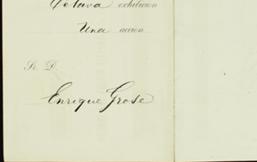 Octava exhibición
Una acción
Sr. D.
Enrique Grose